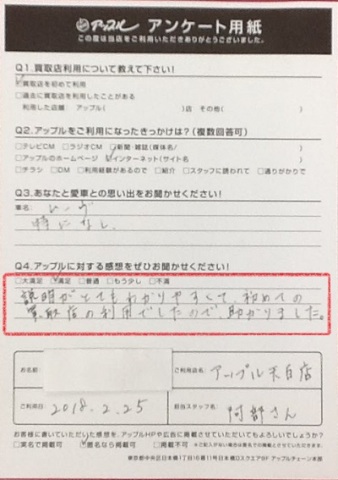 アップル アンケート用紙
この度は当店をご利用いただきありがとうございました。
Q1.買取店利用について教えて下さい!
買取店を初めて利用
□過去に買取店を利用したことがある
利用した店舗 アップル( )店 その他( )
Q2.アップルをご利用になったきっかけは?(複数回答可)
□テレビCM □ラジオCM □新聞・雑誌(媒体名/ )
□アップルのホームページ インターネット(サイト名 )
□チラシ □DM □利用経験があるので □紹介 □スタッフに誘われて □通りがかりで
Q3.あなたと愛車との思い出をお聞かせください!
車名:
特になし。
Q4.アップルに対する感想をぜひお聞かせください!
□大満足 満足 □普通 □もう少し □不満
説明がとてもわかりやすくて、初めての
買取店の利用でしたので、助かりました。
お名前
ご利用店名: アップル天白店
ご利用日 2018.2.25
担当スタッフ名: 阿部さん
お客様に書いていただいた感想を、アップルHPや広告に掲載させていただいてもよろしいでしょうか?
□実名で掲載可 匿名なら掲載可 □掲載不可
東京都中央区日本橋1丁目16番11号日本橋Dスクエア8F アップルチェーン本部